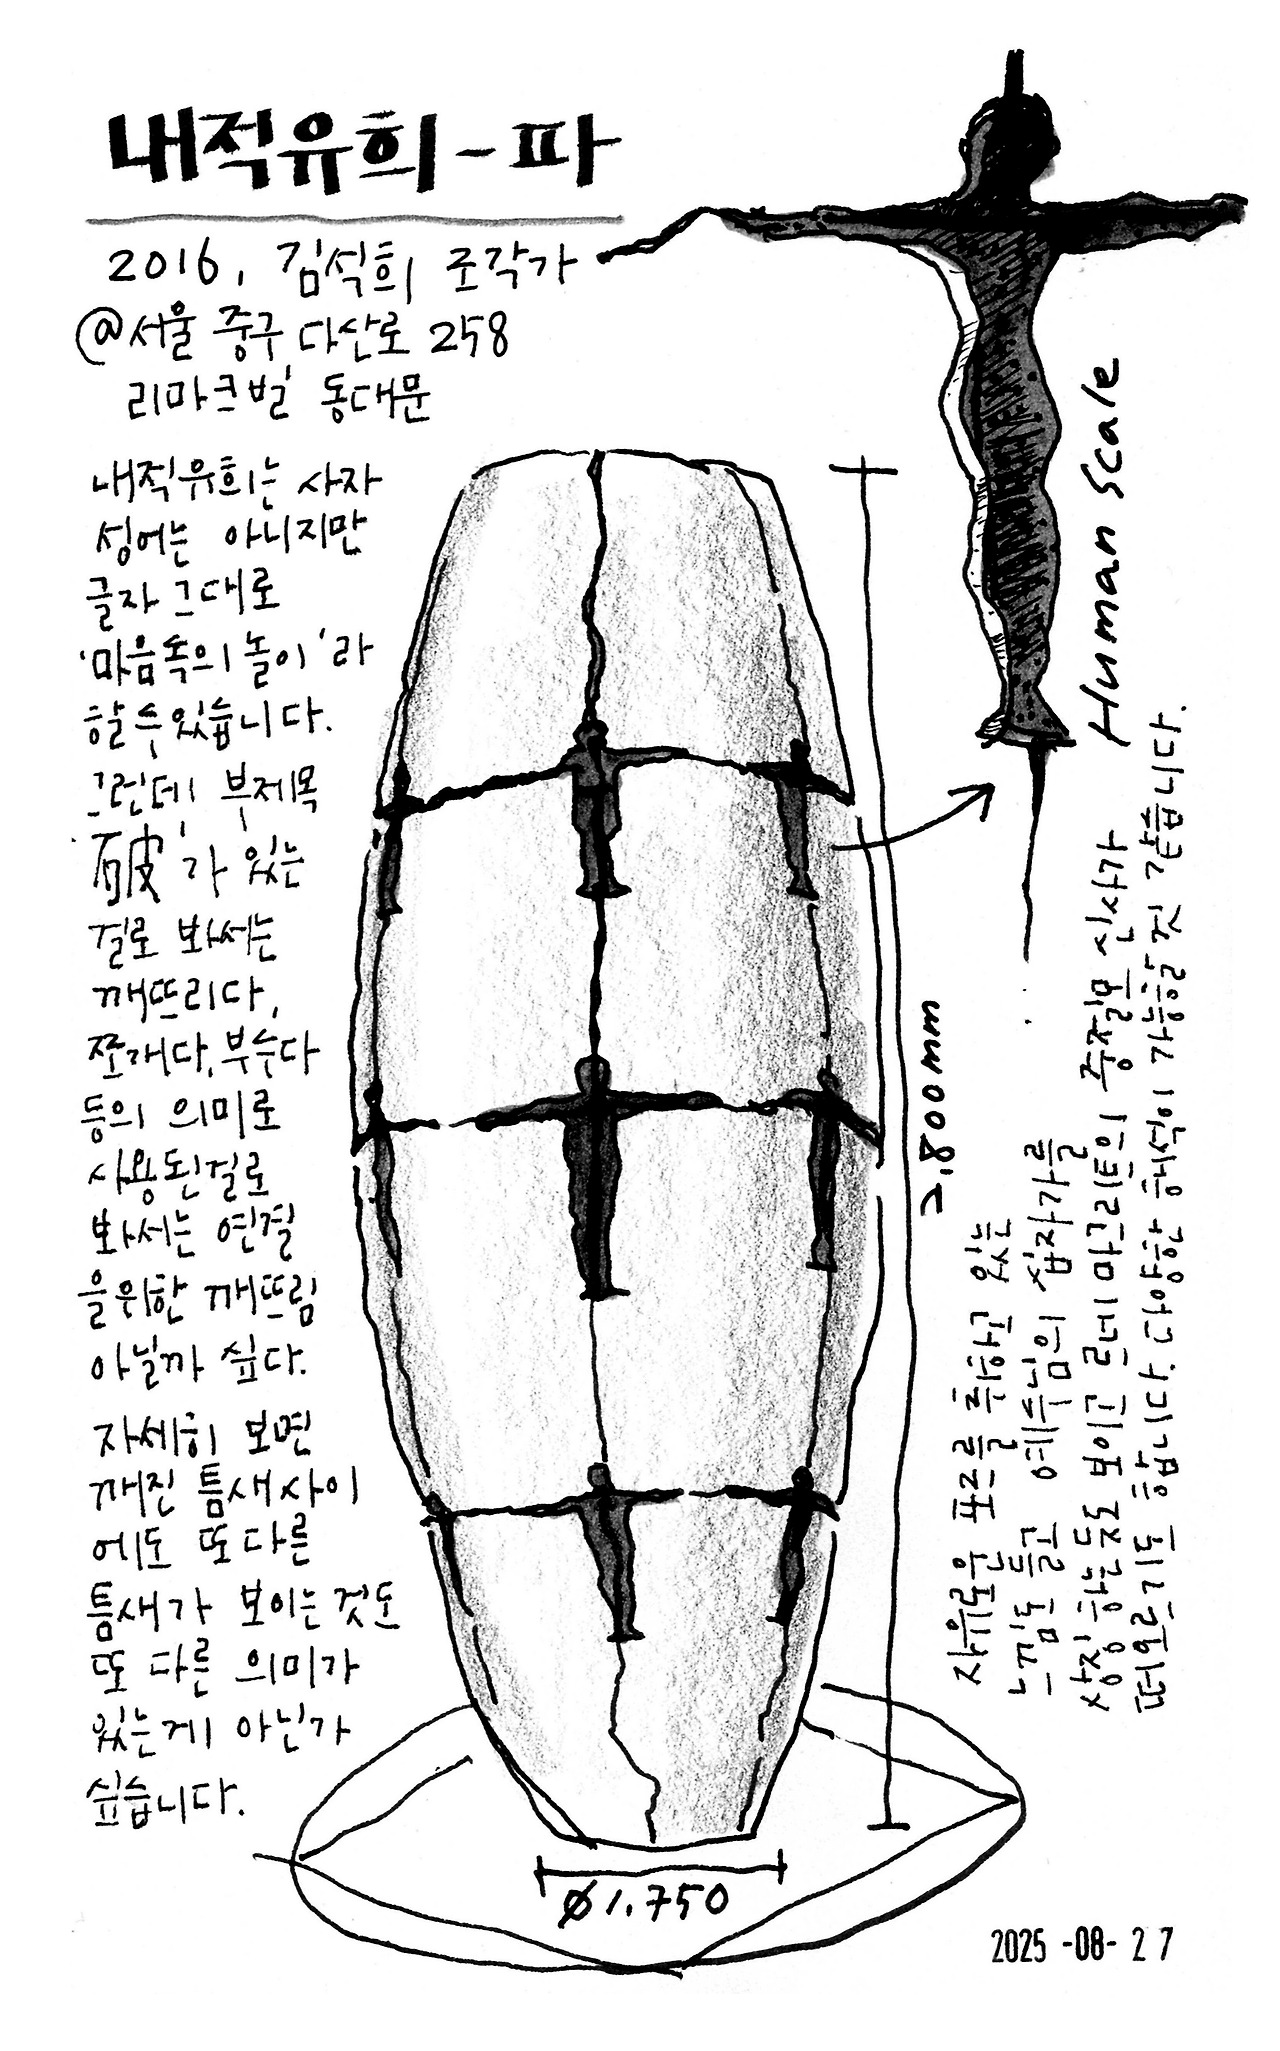 내적유희-파
2016, 김석희 조각가
@서울 중구 다산로 258
리마크빌 동대문
내적유희는 사자
성어는 아니지만
글자 그대로
'마음속의 놀이'라
할 수 있습니다.
그런데, 부제목
'破'가 있는
걸로 봐서는
깨뜨리다,
쪼개다, 부수다
등의 의미로
사용된걸로
봐서는 연결
을위한 깨뜨림
아닐까 싶다.
자세히 보면
깨진 틈새사이
에도 또다른
틈새가 보이는 것도
또 다른 의미가
있는게 아닌가
싶습니다.
Human Scale
2.800mm
자유로운 포즈를 취하고 있는
느낌도 들고 예수님의 십자가를
상징하는 듯도 보이고 르네 마그리트의 중절모 신사가
떠오르기도 합니다. 다양한 해석이 가능할 것 같습니다.
Ø1.750
2025-08-27